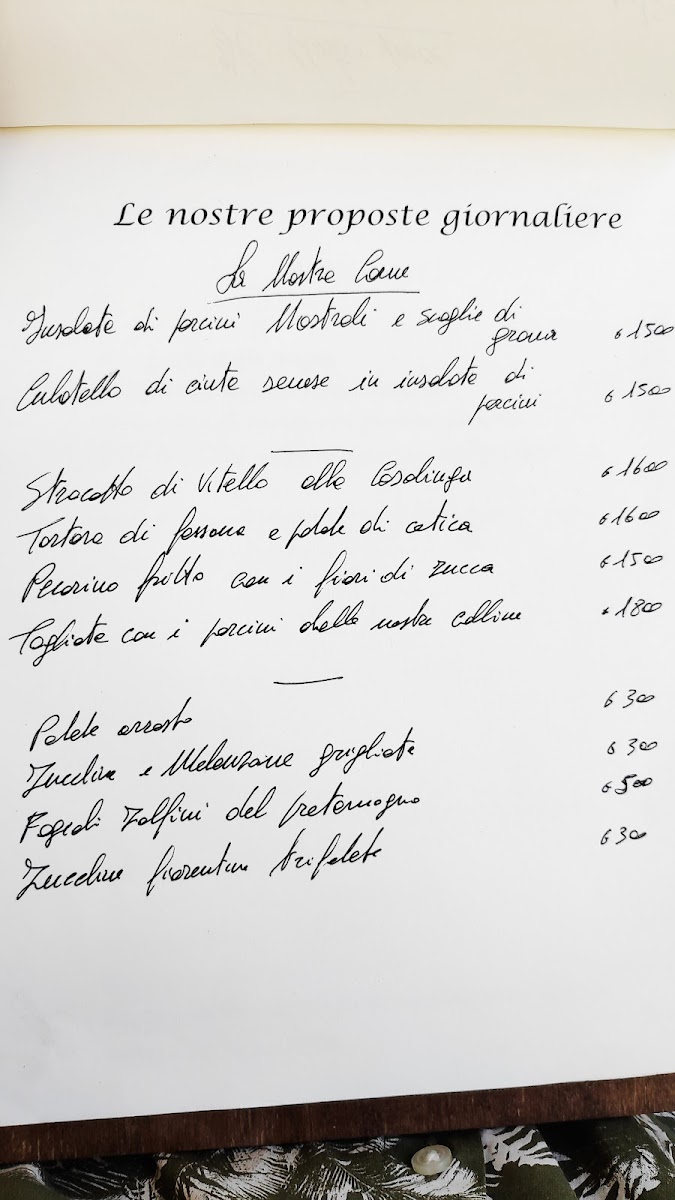 Le nostre proposte giornaliere
La Nostra Carne
Insalata di porcini Nostrali e scaglie di
grana € 15 00
Culatello di cinta senese in insalata di
porcini € 15 00
Stracotto di Vitello alla Casalinga € 16 00
Tartara di fassona e patate di cetica € 16 00
Pecorino fritto con i fiori di zucca € 15 00
Tagliata con i porcini delle nostre colline € 18 00
Patate arrosto € 3 00
Zucchine e Melanzane grigliate € 3 00
Fagioli Zolfini del pratomagno € 5 00
Zucchine fiorentine trifolate € 3 00